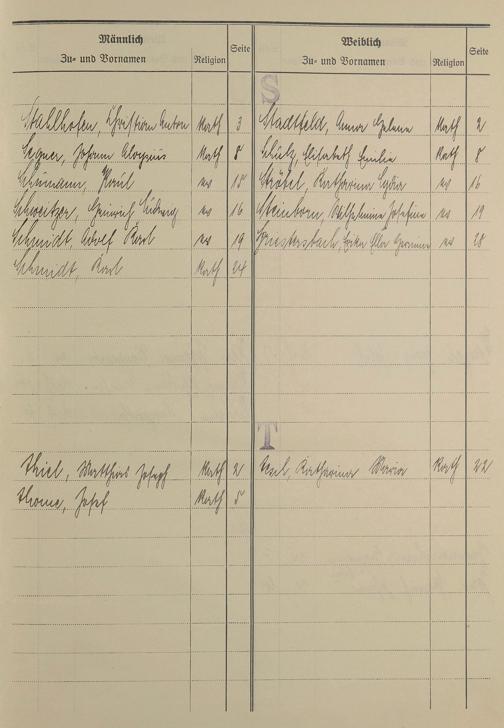 Männlich Weiblich
Zu- und Vornamen Religion Seite Zu- und Vornamen Religion Seite
S
Stahlhofen, Christian Anton Kath 3 Stadtfeld, Anna Helena Kath 2
Johann Aloysius Kath 8 Schulz, Elisabeth Emilie Kath 8
Schumann, Paul ev 15 Ströhel, Katharina ev 16
Schweitzer, Heinrich Ludwig ev 16 Steinborn, Wilhelmine Josefine ev 19
Schmidt, Adolf Karl ev 19 Erika ev 28
Schmidt, Karl Kath 24
T
Thiel, Matthias Joseph Kath 2 Katharina Maria Kath 22
Thome, Josef Kath 5